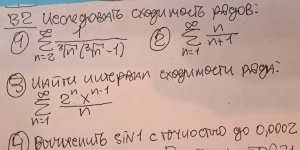 В2 Исследовать сходимость рядов:
① ∞ ∑ n=2 1/(∛n (∛n - 1)) ② ∞ ∑ n=1 n/(n+1)
③ Найти интервал сходимости ряда:
∞ ∑ n=1 2ⁿ xⁿ⁻¹ / n
④ Вычислить sin 1 с точностью до 0,0002